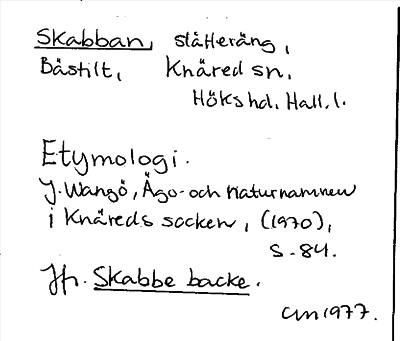 Skabban, slåtteräng,
Båstilt, Knäred sn,
Höks hd, Hall. l.
Etymologi.
J. Wangö, Ägo- och naturnamnen
i Knäreds socken, (1970),
s. 84.
Jfr. Skabbe backe.
CM 1977.